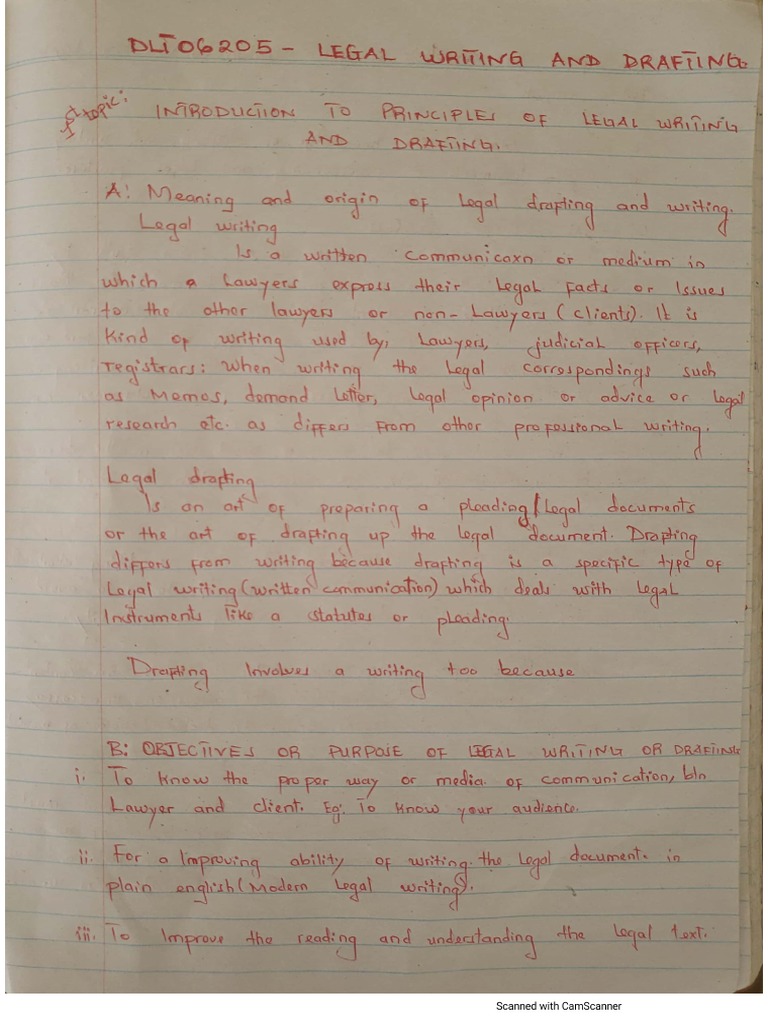 DLT06205 - LEGAL WRITING AND DRAFTING.
1st topic:
INTRODUCTION TO PRINCIPLES OF LEGAL WRITING
AND DRAFTING.
A: Meaning and origin of Legal drafting and writing.
Legal writing
Is a written communicaxn or medium in
which a Lawyers express their Legal facts or Issues
to the other lawyers or non-Lawyers (clients). It is
Kind of writing used by, Lawyers, judicial officers,
registrars: when writing the Legal correspondings such
as Memos, demand letter, Legal opinion or advice or Legal
research etc. as differs from other professional writing.
Legal drafting
Is an art of preparing a pleading/Legal documents
or the art of drafting up the Legal document. Drafting
differs from writing because drafting is a specific type of
Legal writing (written communication) which deals with Legal
Instruments like a statutes or pleading.
Drafting Involves a writing too because
B: OBJECTIVES OR PURPOSE OF LEGAL WRITING OR DRAFTING
i. To Know the proper way or media of communication, btn
Lawyer and client. Eg: To Know your audience.
ii. For a Improving ability of writing the Legal document. in
plain english (Modern Legal writing).
iii. To Improve the reading and understanding the Legal text.
Scanned with CamScanner